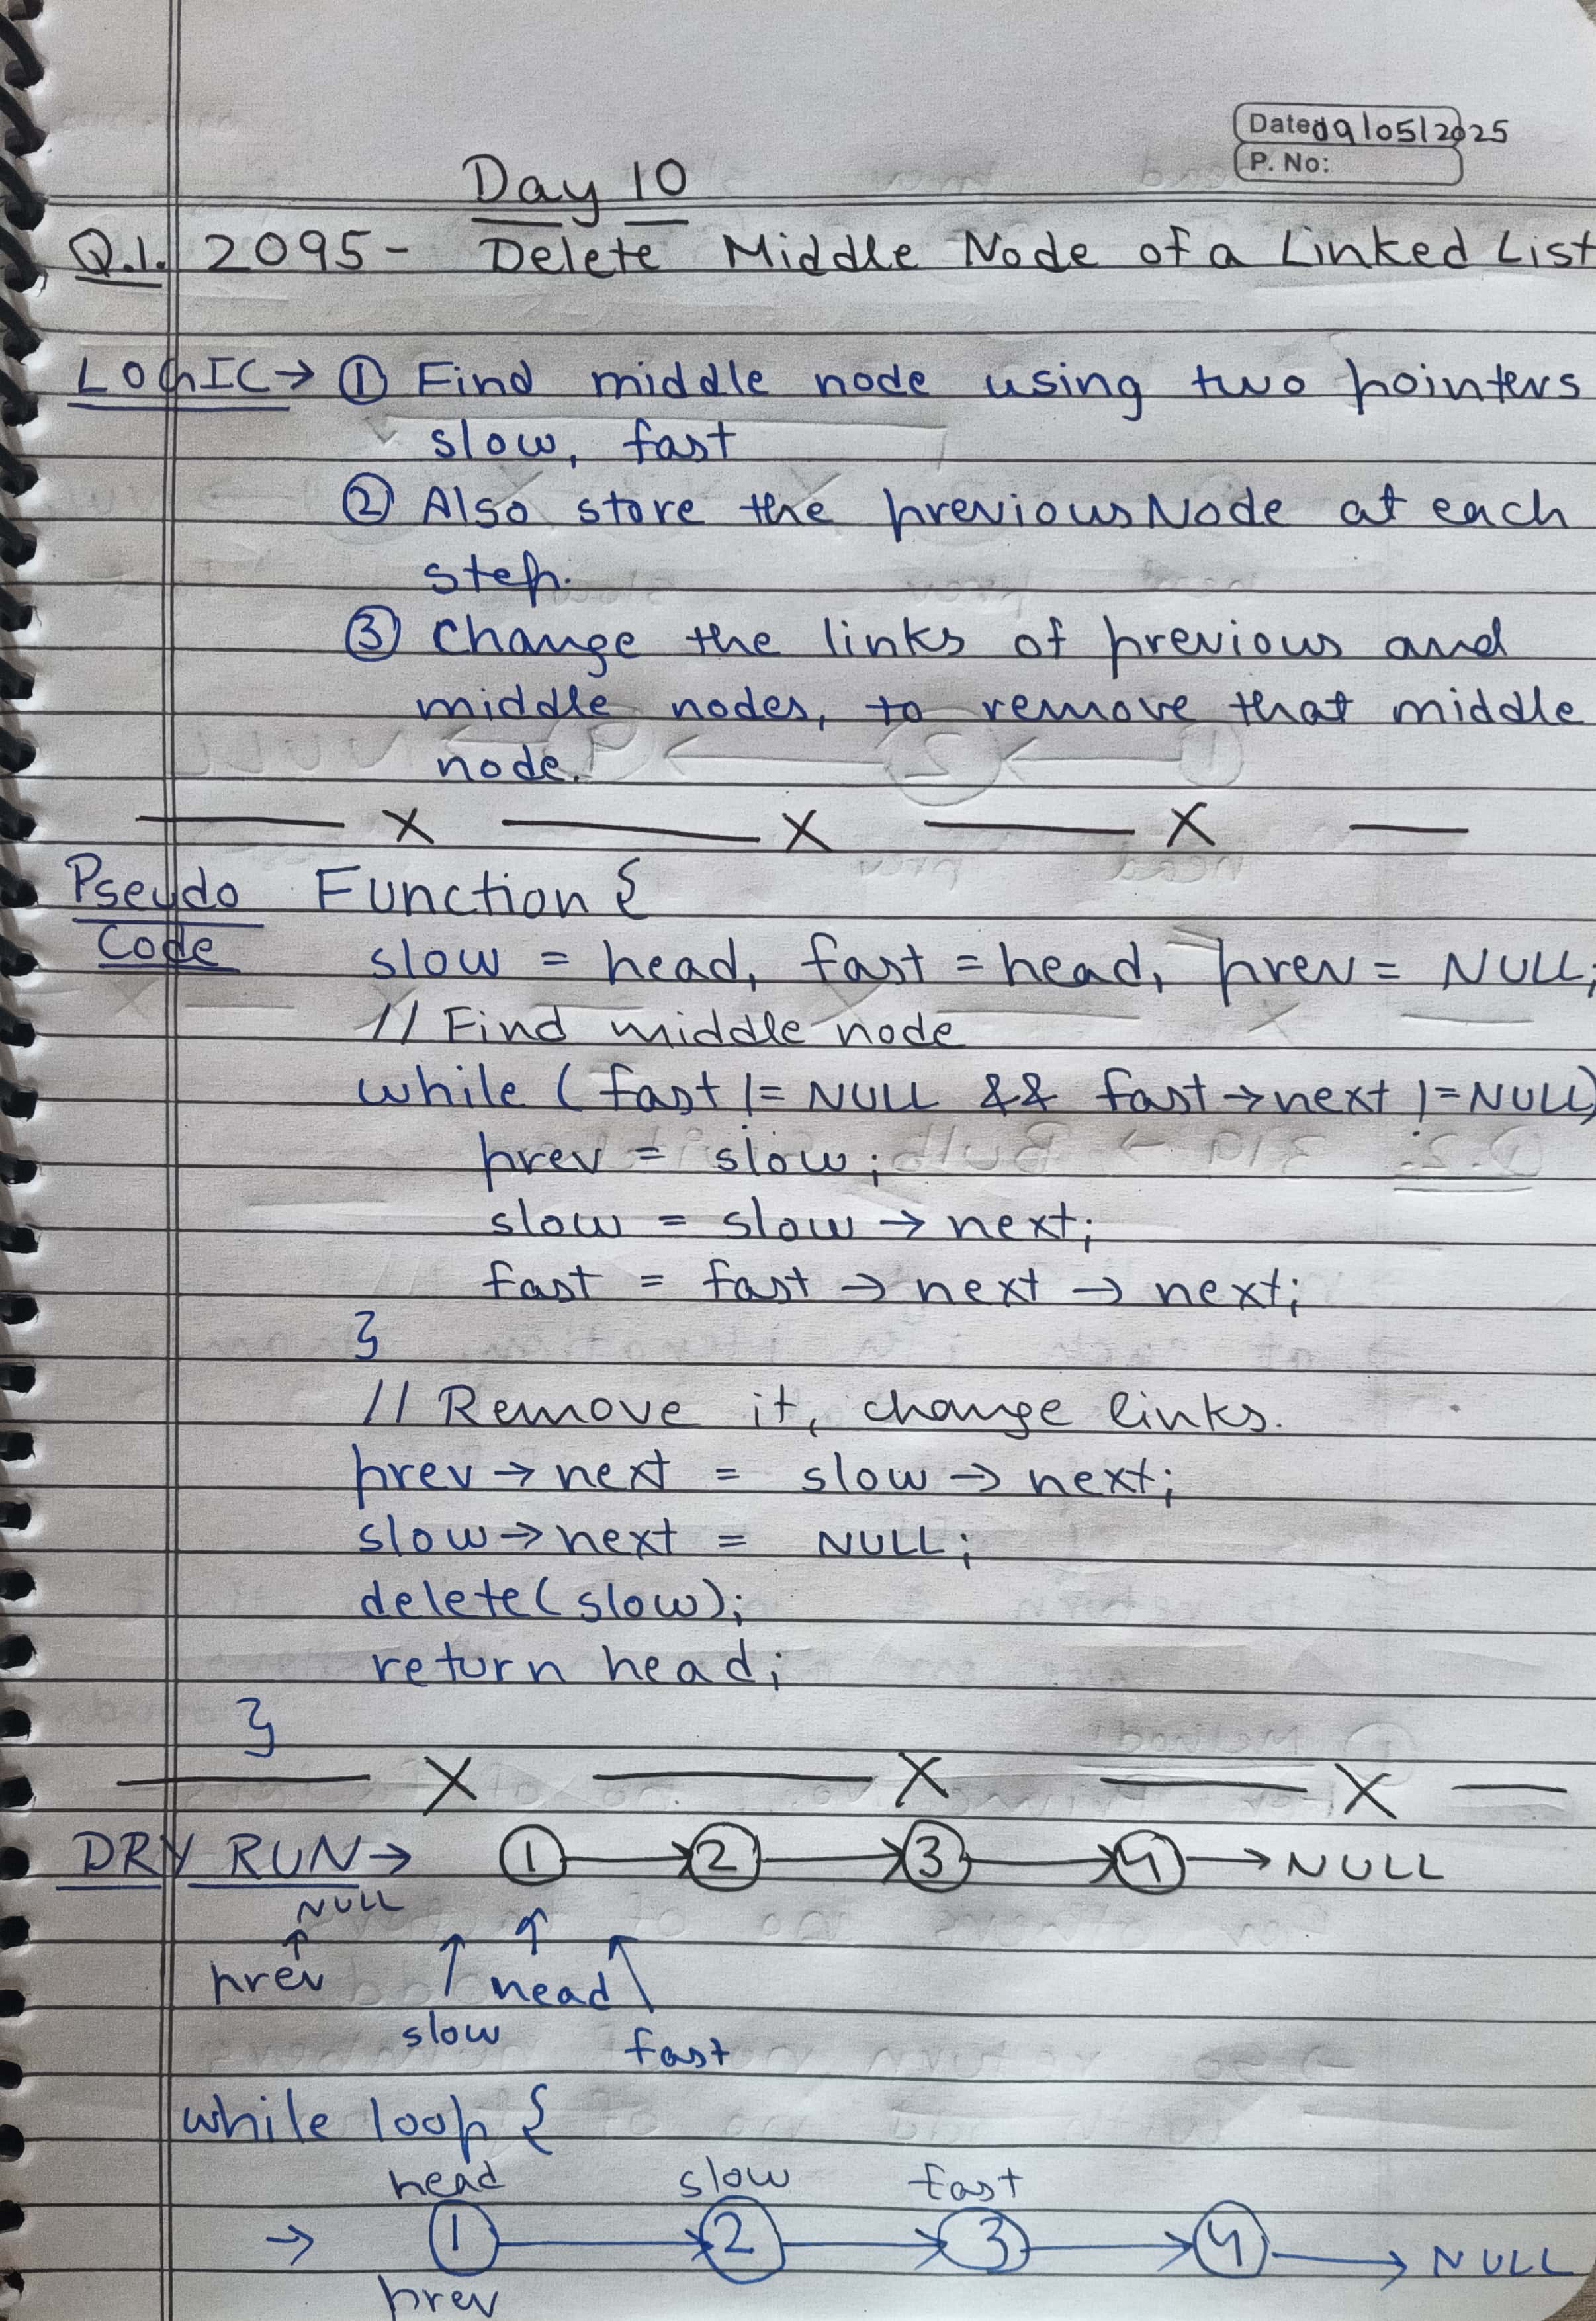 Dated 09/05/2025
P. No:
Day 10
Q.1. 2095- Delete Middle Node of a Linked List
LOGIC→ ① Find middle node using two pointers
slow, fast
② Also store the previous Node at each
step.
③ Change the links of previous and
middle nodes, to remove that middle
node.
— X — X — X —
Pseudo Function {
Code
slow = head, fast = head, prev = NULL;
// Find middle node
while (fast != NULL && fast→next != NULL)
prev = slow;
slow = slow → next;
fast = fast → next → next;
}
// Remove it, change links.
prev → next = slow → next;
slow → next = NULL;
delete(slow);
return head;
}
— X — X — X —
DRY RUN→ 1 → 2 → 3 → 4 → NULL
NULL
prev ↑ head
slow fast
while loop {
head slow fast
→ 1 → 2 → 3 → 4 → NULL
prev